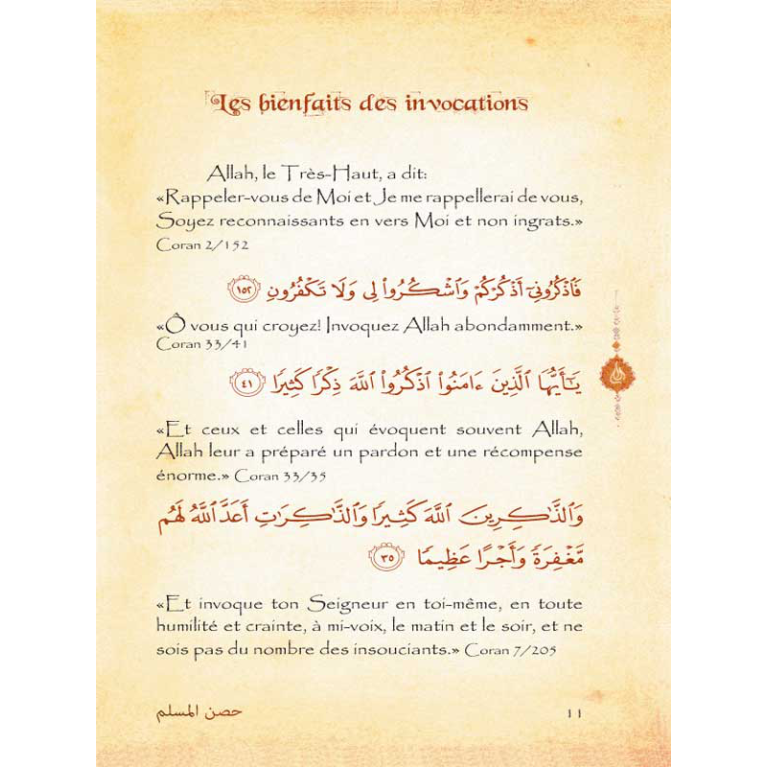 Les bienfaits des invocations
Allah, le Très-Haut, a dit:
«Rappeler-vous de Moi et Je me rappellerai de vous,
Soyez reconnaissants en vers Moi et non ingrats.»
Coran 2/152
فَٱذْكُرُونِىٓ أَذْكُرْكُمْ وَٱشْكُرُوا۟ لِى وَلَا تَكْفُرُونِ ١٥٢
«Ô vous qui croyez! Invoquez Allah abondamment.»
Coran 33/41
يَـٰٓأَيُّهَا ٱلَّذِينَ ءَامَنُوا۟ ٱذْكُرُوا۟ ٱللَّهَ ذِكْرًا كَثِيرًا ٤١
«Et ceux et celles qui évoquent souvent Allah,
Allah leur a préparé un pardon et une récompense
énorme.» Coran 33/35
وَٱلذَّٰكِرِينَ ٱللَّهَ كَثِيرًا وَٱلذَّٰكِرَٰتِ أَعَدَّ ٱللَّهُ لَهُم
مَّغْفِرَةً وَأَجْرًا عَظِيمًا ٣٥
«Et invoque ton Seigneur en toi-même, en toute
humilité et crainte, à mi-voix, le matin et le soir, et ne
sois pas du nombre des insouciants.» Coran 7/205
حصن المسلم
11